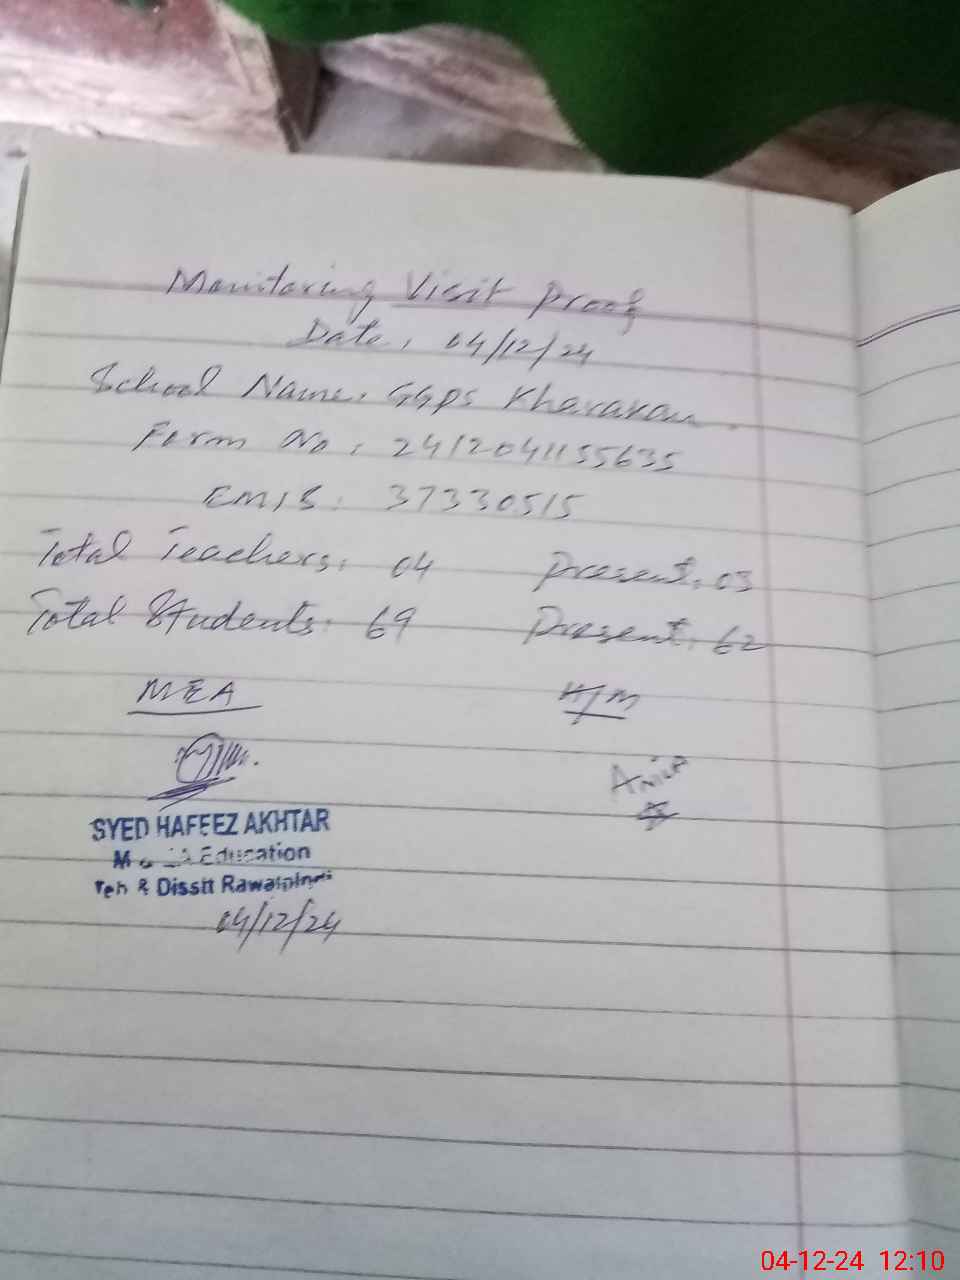 Monitoring Visit Proof
Date: 04/12/24
School Name: GGPS Kharakan
Form No: 2412041155635
EMIS: 37330515
Total Teachers: 04 Present: 03
Total Students: 69 Present: 62
MEA H/M
Anila
SYED HAFEEZ AKHTAR
M & EA Education
Teh & Disstt Rawalpindi
04/12/24
04-12-24 12:10